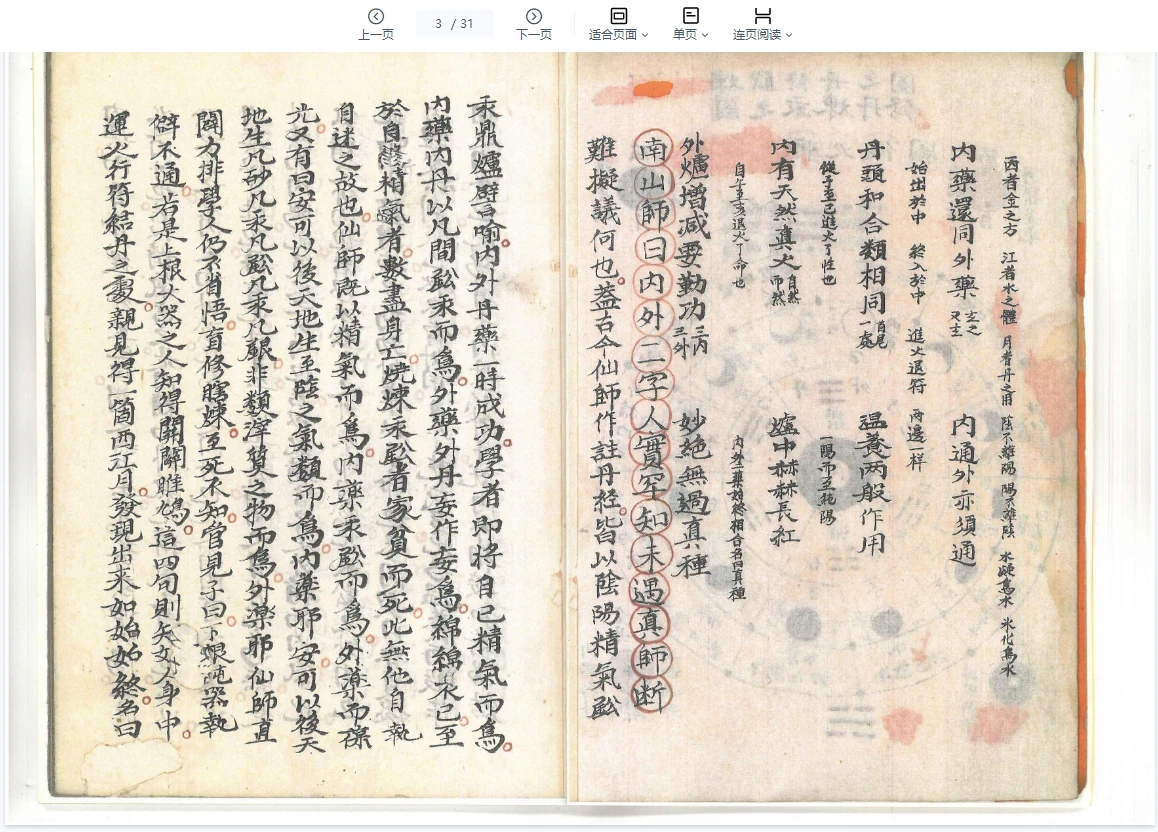 上一页
3 / 31
下一页
适合页面
单页
连页阅读
西者金之方 江者水之體 月者丹之用 陰不離陽 陽不離陰 水凝為冰 氷化為水
内藥還同外藥 玄之又玄 内通外亦須通
始出於中 終入於中 進火退符 兩邊一样
丹頭和合類相同 首尾一處 温養两般作用
從子至巳進火了性也 一陽而互純陽
内有天然真火 自然而然 爐中赫赫長紅
自午至亥退火了命也 内外二藥始終相合名曰真種
外爐増减要勤功 三内三外 妙絶無過真種
南山師曰内外二字人實罕知未遇真師断
難擬議何也葢古今仙師作註丹經皆以陰陽精氣鈆
汞鼎爐譬喻内外丹藥一時成功學者即将自己精氣而為
内藥内丹以凡間鈆汞而為外藥外丹妄作妄為綿綿不已至
於自修精氣者數盡身亡燒煉汞鈆者家貧而死此無他自執
自迷之故也仙師既以精氣而為内藥汞鈆而為外藥而𥙿
尤又有曰安可以後天地生至陰之氣類而為内藥耶安可以後天
地生凡砂凡汞凡鈆凡汞凡銀非類滓質之物而為外藥耶仙師直
闢力排學人仍不省悟盲修瞎煉至死不知管見子曰下根𠒇器執
僻不通若是上根大器之人知得開關雎鳩這四句則夫文人身中
運火行符結丹之妙親見得一箇西江月發現出来如始如終名曰